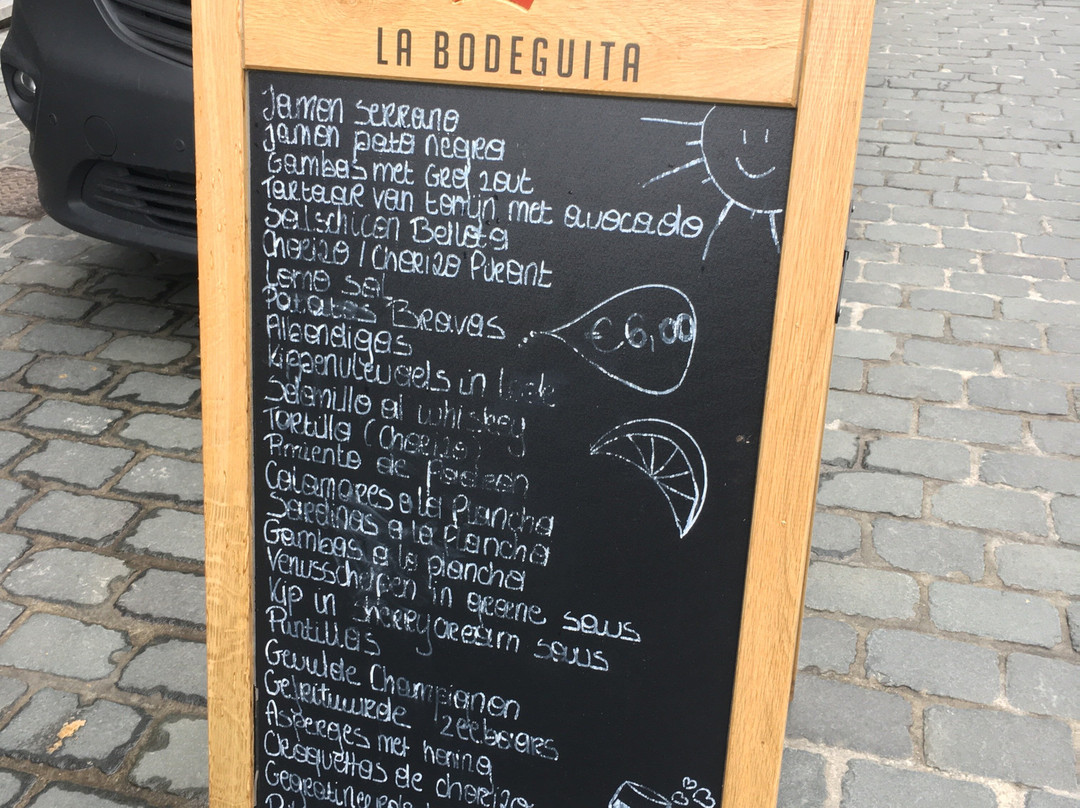 LA BODEGUITA
Jamon serrano
jamon pata negra
Gambas met Grof zout
Tartaar van tonijn met avocado
Salschicon Bellota
Chorizo / Chorizo Picant
Lomo sal
Patatas Bravas
€ 6,00
Albondigas
Kippenvleugels in look
Solomillo al whiskey
Tortilla (Chorizo)
Pimiento de Padron
Calamares a la plancha
Sardinas a la plancha
Gambas a la plancha
Venusschelpen in groene saus
Kip in sherrycream saus
Puntillas
Gevulde Champignon
Gefrituurde zeebaars
Asperges met honing
Croquettas de chorizo